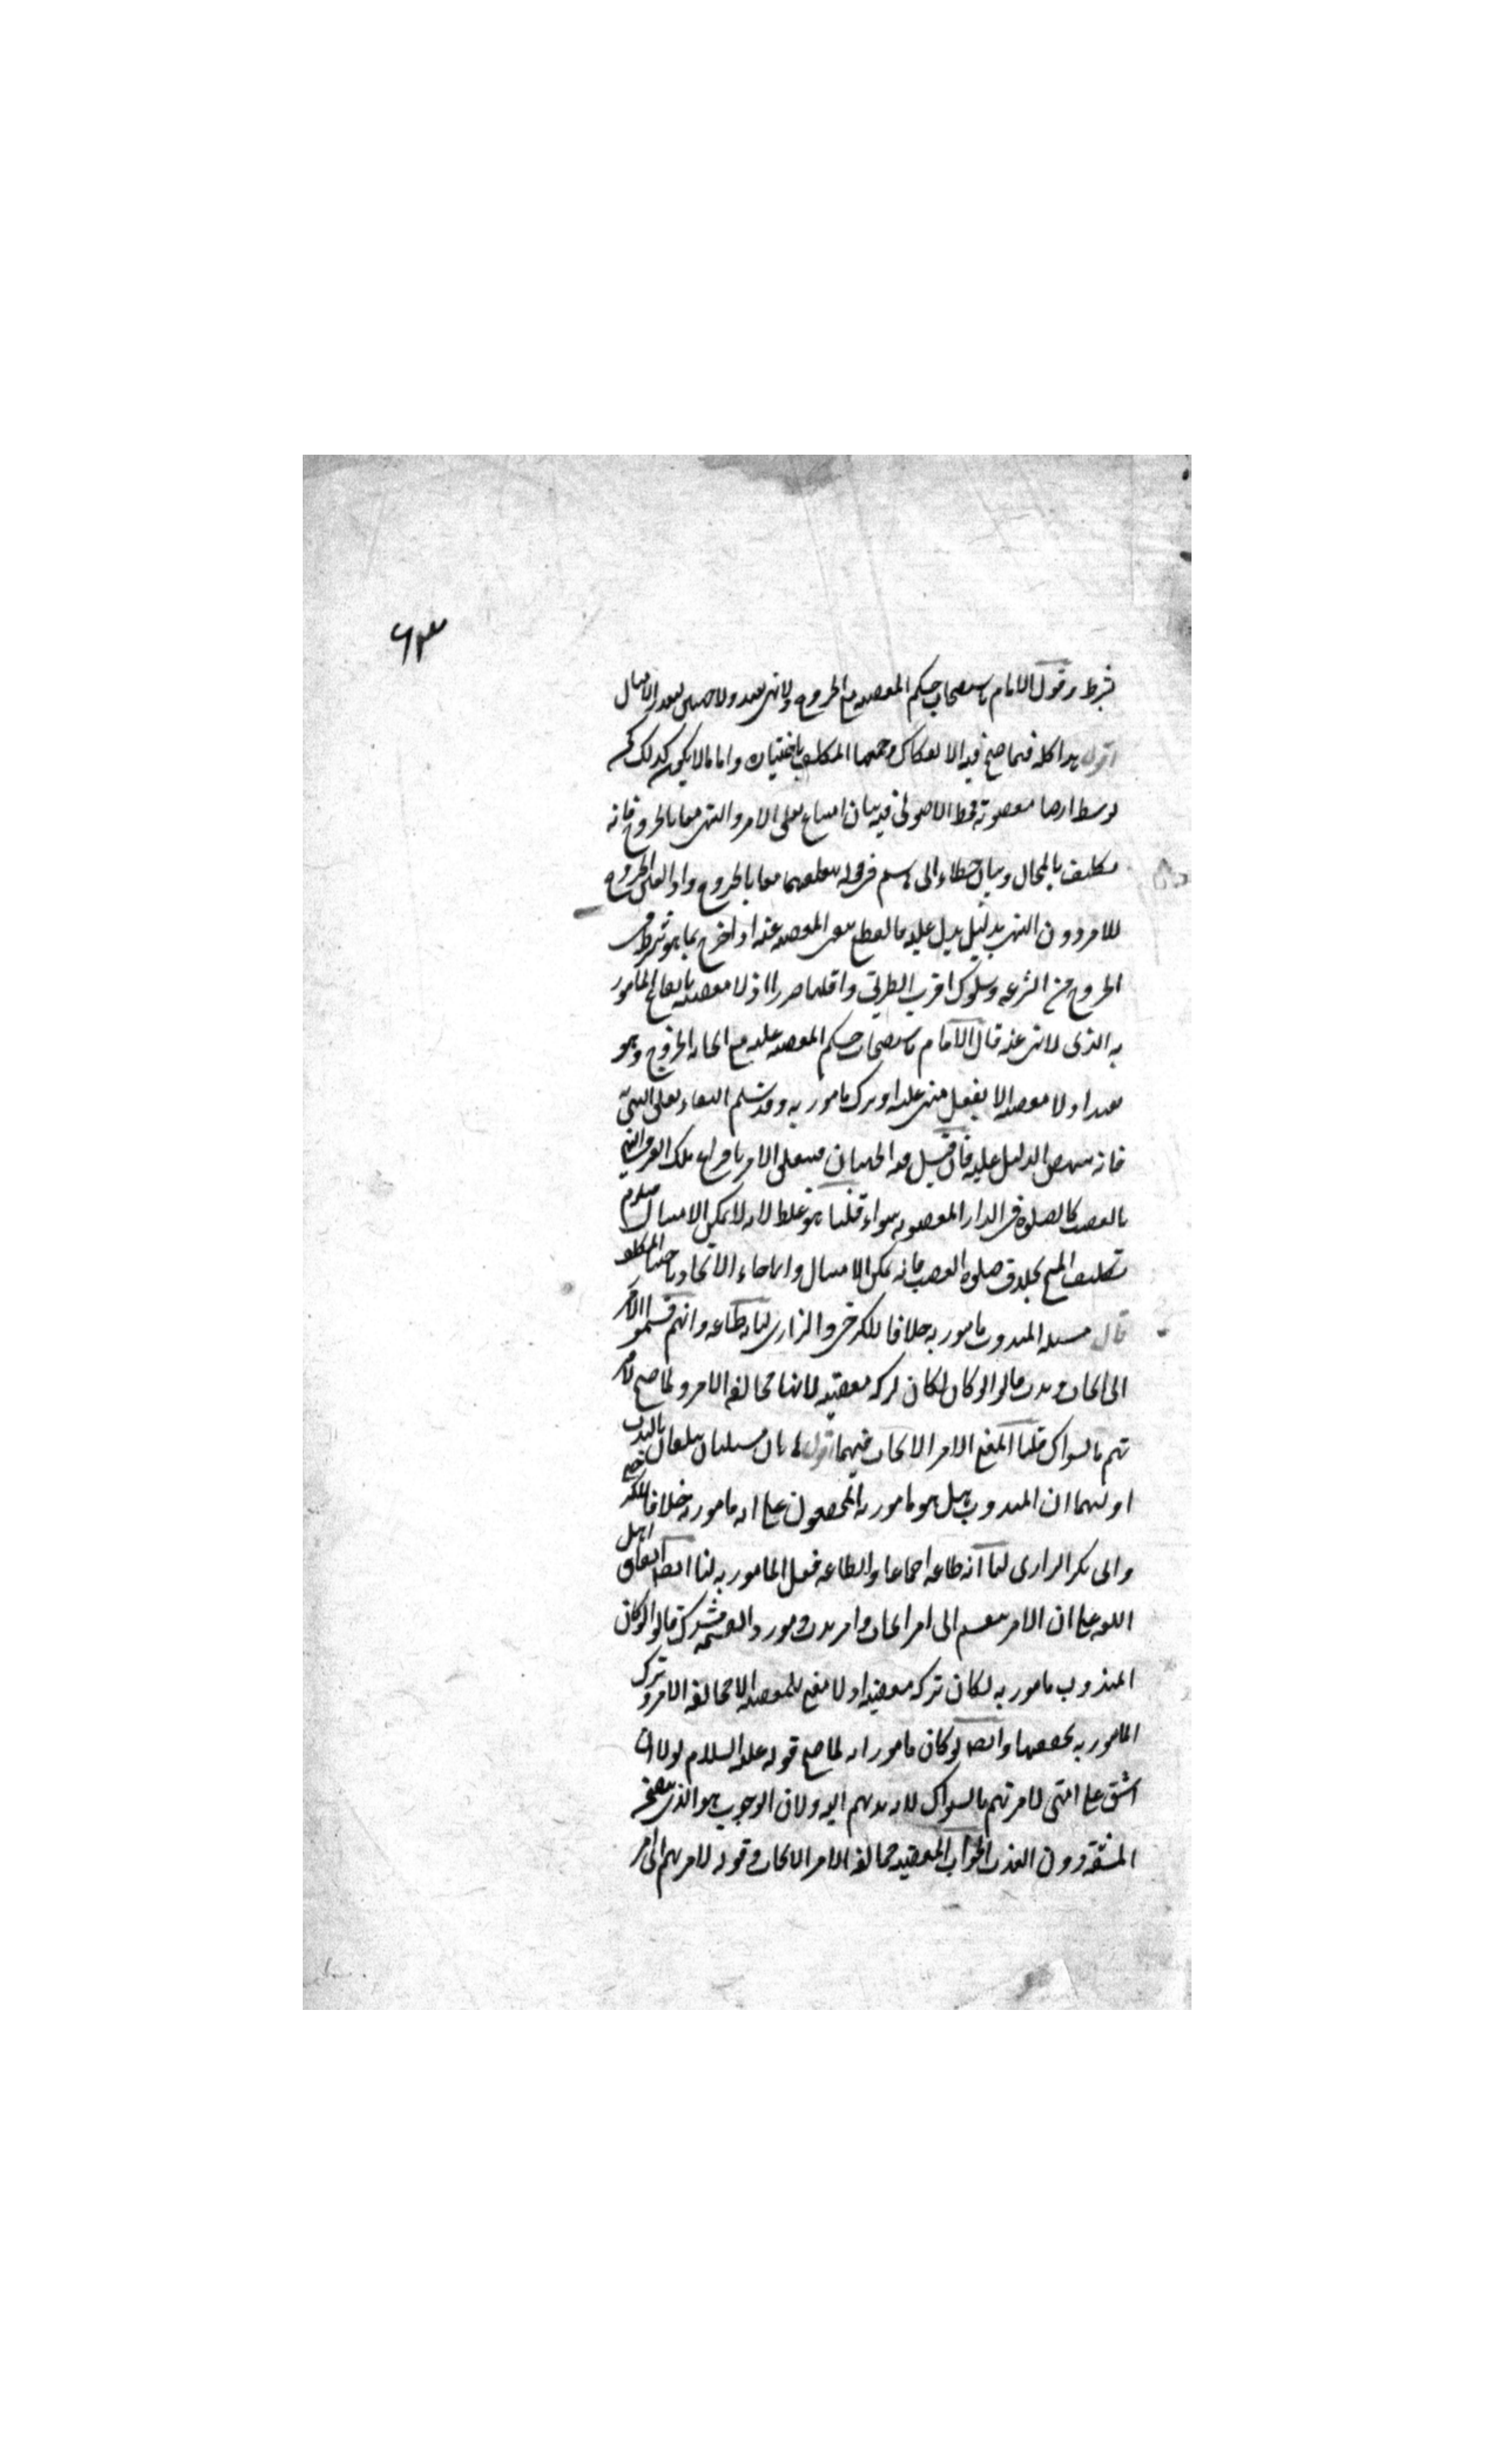 ٦٣
بشرطه وقول الامام باستصحاب حكم المعصية مع الخروج ولا نهى بعيد ولا جهتين لتعذر الامتثال
اقول هذا كله فيما صح فيه الانفكاك وجمعهما المكلف باختياره واما ما لا يكون كذلك كمن
توسط ارضا مغصوبة فحظ الاصولى فيه بيان امتناع تعلق الامر والنهى معا بالخروج فانه
تكليف بالمحال وبيان خطاء ابى هاشم فى قوله بتعلقهما معا بالخروج واذا تعين الخروج
للامر دون النهى بدليل يدل عليه فالقطع بنفى المعصية عنه اذا خرج بما هو شرط فى
الخروج من السرعة وسلوك اقرب الطرق واقلها ضررا اذ لا معصية بايقاع المامور
به الذى لا نهى عنه قال الامام باستصحاب حكم المعصية عليه مع ايجابه الخروج وهو
بعيد اذ لا معصية الا بفعل منهى عنه او ترك مامور به وقد سلم انتفاء تعلق النهى
فانه ينهض الدليل عليه فان قيل فيه الجهتان فيتعلق الامر بافراغ ملك الغير والنهى
بالغصب كالصلوة فى الدار المغصوبة سواء قلنا هو غلط لانه لا يمكن الامتثال فيلزم
تكليف المحال بخلاف صلوة الغصب فانه يمكن الامتثال وانما جاء الاتحاد باختيار المكلف
قال مسئلة المندوب مامور به خلافا للكرخى والرازى لنا انه طاعة وانهم قسموا الامر
الى ايجاب وندب قالوا لو كان لكان تركه معصية لانها مخالفة الامر ولما صح لامر
تهم بالسواك قلنا المعنى الامر الايجاب فيهما اقول هاتان مسئلتان يتعلقان بالندب
اوليهما ان المندوب هل هو مامور به المحققون على انه مامور به خلافا للكرخى
وابى بكر الرازى لنا انه طاعة اجماعا والطاعة فعل المامور به لنا ايضا اتفاق اهل
اللغة على ان الامر ينقسم الى امر ايجاب وامر ندب ومورد القسمة مشترك قالوا لو كان
المندوب مامور به لكان تركه معصية اذ لا معنى للمعصية الا مخالفة الامر وترك
المامور به يحققها وايضا لو كان مامورا به لما صح قوله عليه السلام لولا ان
اشق على امتى لامرتهم بالسواك لانه ندبهم اليه ولان الوجوب هو الذى يتضمن
المشقة دون الندب الجواب المعصية مخالفة الامر الايجاب وقوله لامرتهم اى امر